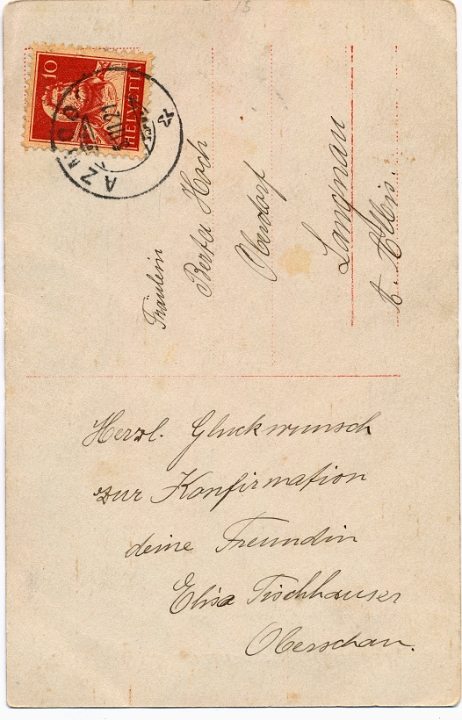 10
HELVETIA
AZMOOS
Fräulein
Berta Hoch
Oberdorf
Langnau
a. Albis.
Herzl. Glückwunsch
zur Konfirmation
deine Freundin
Elisa Tischhauser
Oberschan.